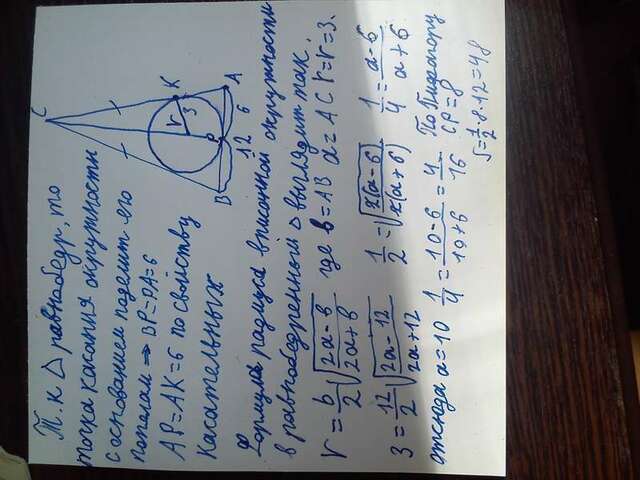 Т. к △ равнобедр, то
точка касания окружности
с основанием поделит его
пополам ⇒ BP=PA=6
AP=AK=6 по свойству
касательных
C
K
r
3
P
A
B
12
6
Формула радиуса вписанной окружности
в равнобедренный △ выглядит так,
r = b/2 √((2a-b)/(2a+b)) где b=AB a=AC r=r=3.
3 = 12/2 √((2a-12)/(2a+12)) 1/2 = √(2(a-6)/2(a+6)) 1/4 = (a-6)/(a+6)
отсюда a=10 1/4 = (10-6)/(10+6) = 4/16
По Пифагору
CP=8
S=1/2·8·12=48